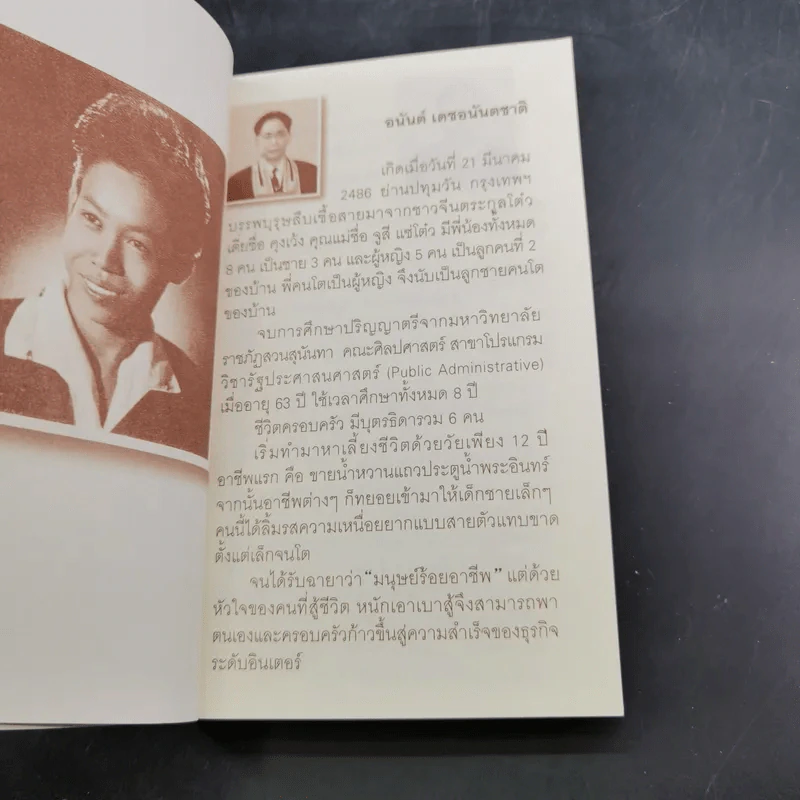 อนันต์ เดชอนันตชาติ
เกิดเมื่อวันที่ 21 มีนาคม
2486 ย่านปทุมวัน กรุงเทพฯ
บรรพบุรุษสืบเชื้อสายมาจากชาวจีนตระกูลโต๋ว
เตี่ยชื่อ คุงเว้ง คุณแม่ชื่อ จูสี แซ่โต๋ว มีพี่น้องทั้งหมด
8 คน เป็นชาย 3 คน และผู้หญิง 5 คน เป็นลูกคนที่ 2
ของบ้าน พี่คนโตเป็นผู้หญิง จึงนับเป็นลูกชายคนโต
ของบ้าน
จบการศึกษาปริญญาตรีจากมหาวิทยาลัย
ราชภัฏสวนสุนันทา คณะศิลปศาสตร์ สาขาโปรแกรม
วิชารัฐประศาสนศาสตร์ (Public Administrative)
เมื่ออายุ 63 ปี ใช้เวลาศึกษาทั้งหมด 8 ปี
ชีวิตครอบครัว มีบุตรธิดารวม 6 คน
เริ่มทำมาหาเลี้ยงชีวิตด้วยวัยเพียง 12 ปี
อาชีพแรก คือ ขายน้ำหวานแถวประตูน้ำพระอินทร์
จากนั้นอาชีพต่างๆ ก็ทยอยเข้ามาให้เด็กชายเล็กๆ
คนนี้ได้ลิ้มรสความเหนื่อยยากแบบสายตัวแทบขาด
ตั้งแต่เล็กจนโต
จนได้รับฉายาว่า "มนุษย์ร้อยอาชีพ" แต่ด้วย
หัวใจของคนที่สู้ชีวิต หนักเอาเบาสู้จึงสามารถพา
ตนเองและครอบครัวก้าวขึ้นสู่ความสำเร็จของธุรกิจ
ระดับอินเตอร์